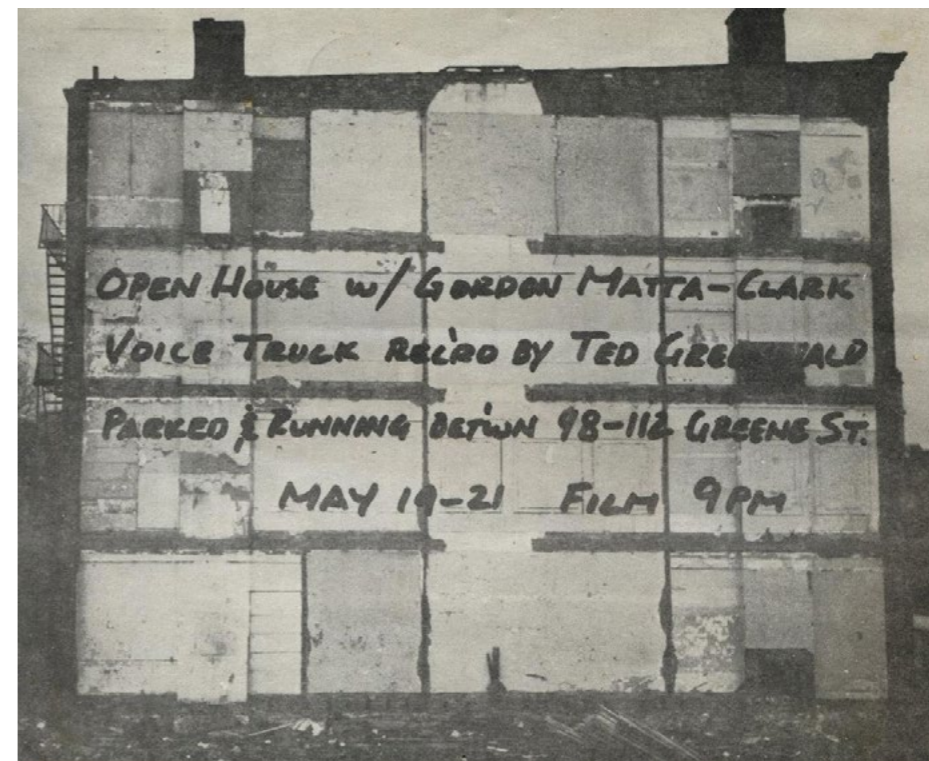 OPEN HOUSE w/ GORDON MATTA-CLARK
VOICE TRUCK REC'RD BY TED GREENWALD
PARKED & RUNNING BETWN 98-112 GREENE ST.
MAY 19-21 FILM 9PM